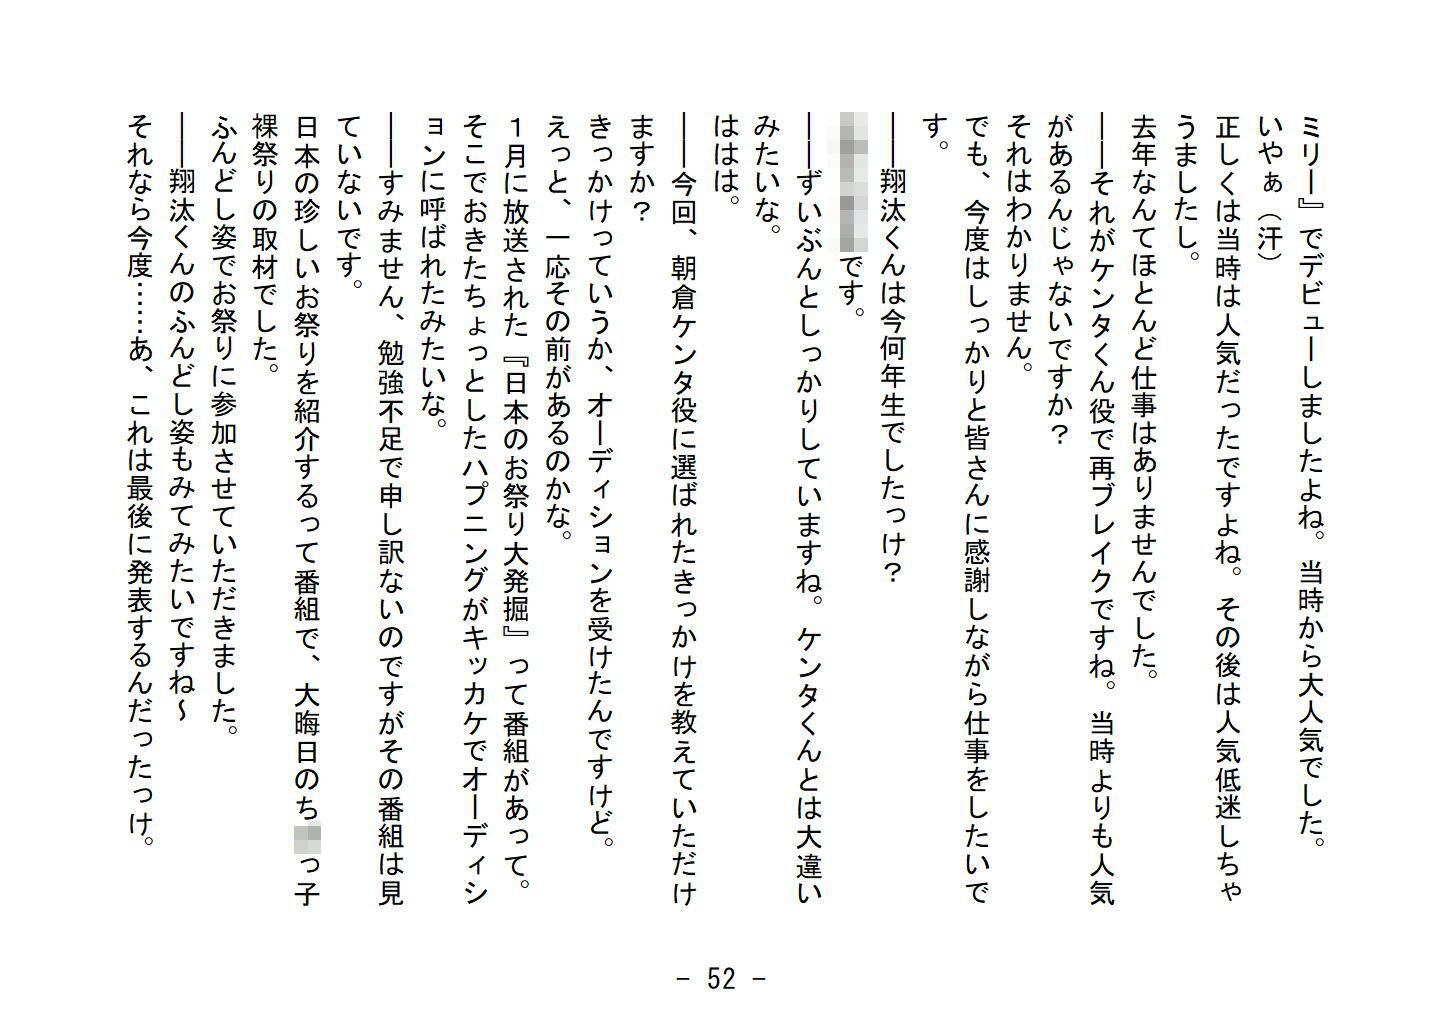 ミリー』でデビューしましたよね。当時から大人気でした。
いやぁ（汗）
正しくは当時は人気だったですよね。その後は人気低迷しちゃ
うましたし。
去年なんてほとんど仕事はありませんでした。
――それがケンタくん役で再ブレイクですね。当時よりも人気
があるんじゃないですか？
それはわかりません。
でも、今度はしっかりと皆さんに感謝しながら仕事をしたいで
す。
――翔汰くんは今何年生でしたっけ？
です。
――ずいぶんとしっかりしていますね。ケンタくんとは大違い
みたいな。
ははは。
――今回、朝倉ケンタ役に選ばれたきっかけを教えていただけ
ますか？
きっかけっていうか、オーディションを受けたんですけど。
えっと、一応その前があるのかな。
１月に放送された『日本のお祭り大発掘』って番組があって。
そこでおきたちょっとしたハプニングがキッカケでオーディシ
ョンに呼ばれたみたいな。
――すみません、勉強不足で申し訳ないのですがその番組は見
ていないです。
日本の珍しいお祭りを紹介するって番組で、大晦日のちっ子
裸祭りの取材でした。
ふんどし姿でお祭りに参加させていただきました。
――翔汰くんのふんどし姿もみてみたいですね～
それなら今度……あ、これは最後に発表するんだったっけ。
- 52 -